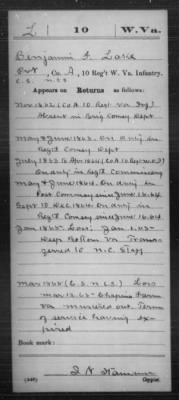 L | 10 | W.Va.
Benjamin F. Lake
Pvt, Co. A, 10 Reg't W. Va. Infantry.
Appears on Returns as follows:
Nov 1862 (Co A 10 Regt Va Inf)
Absent in Brig Comsy Dept
May & June 1863. On duty in
Regtl Comsy Dept
July 1863 to Apr 1864 (Co A 10 Regt W.V.)
On duty in Regtl Commissary
May & June 1864. On duty in
Post Commissary since June 16.64
Sept to Dec 1864. On duty in
Regtl Comsy since June 16.64
Jan 1865. Loss: Jan 1.65-
Deep Bottom Va Trans-
ferred to N.C. Staff
Mar 1865 (C.S. N.C.S) Loss
Mar 12.65 Chapins Farm
Va mustered out. Term
of service having ex-
pired
Book mark:
(546)
Copyist.